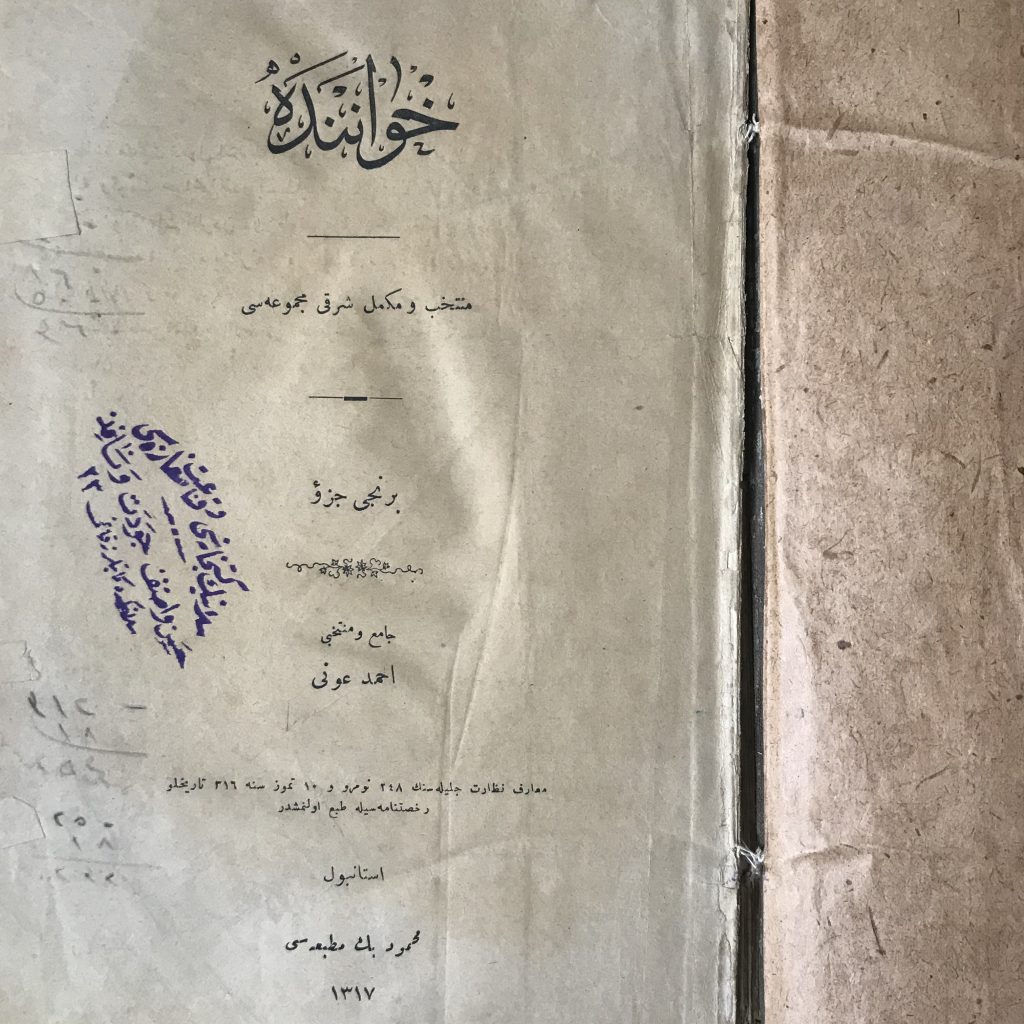 خواننده
منتخب و مكمل شرقی مجموعه‌سی
برنجی جزؤ
جامع و منتخبی
احمد عونی
معارف نظارت جلیله‌سنك ٢٤٨ نومرو و ١٠ تموز سنه ٣١٦ تاریخلو
رخصتنامه‌سیله طبع اولنمشدر
استانبول
محمود بك مطبعه‌سی
١٣١٧